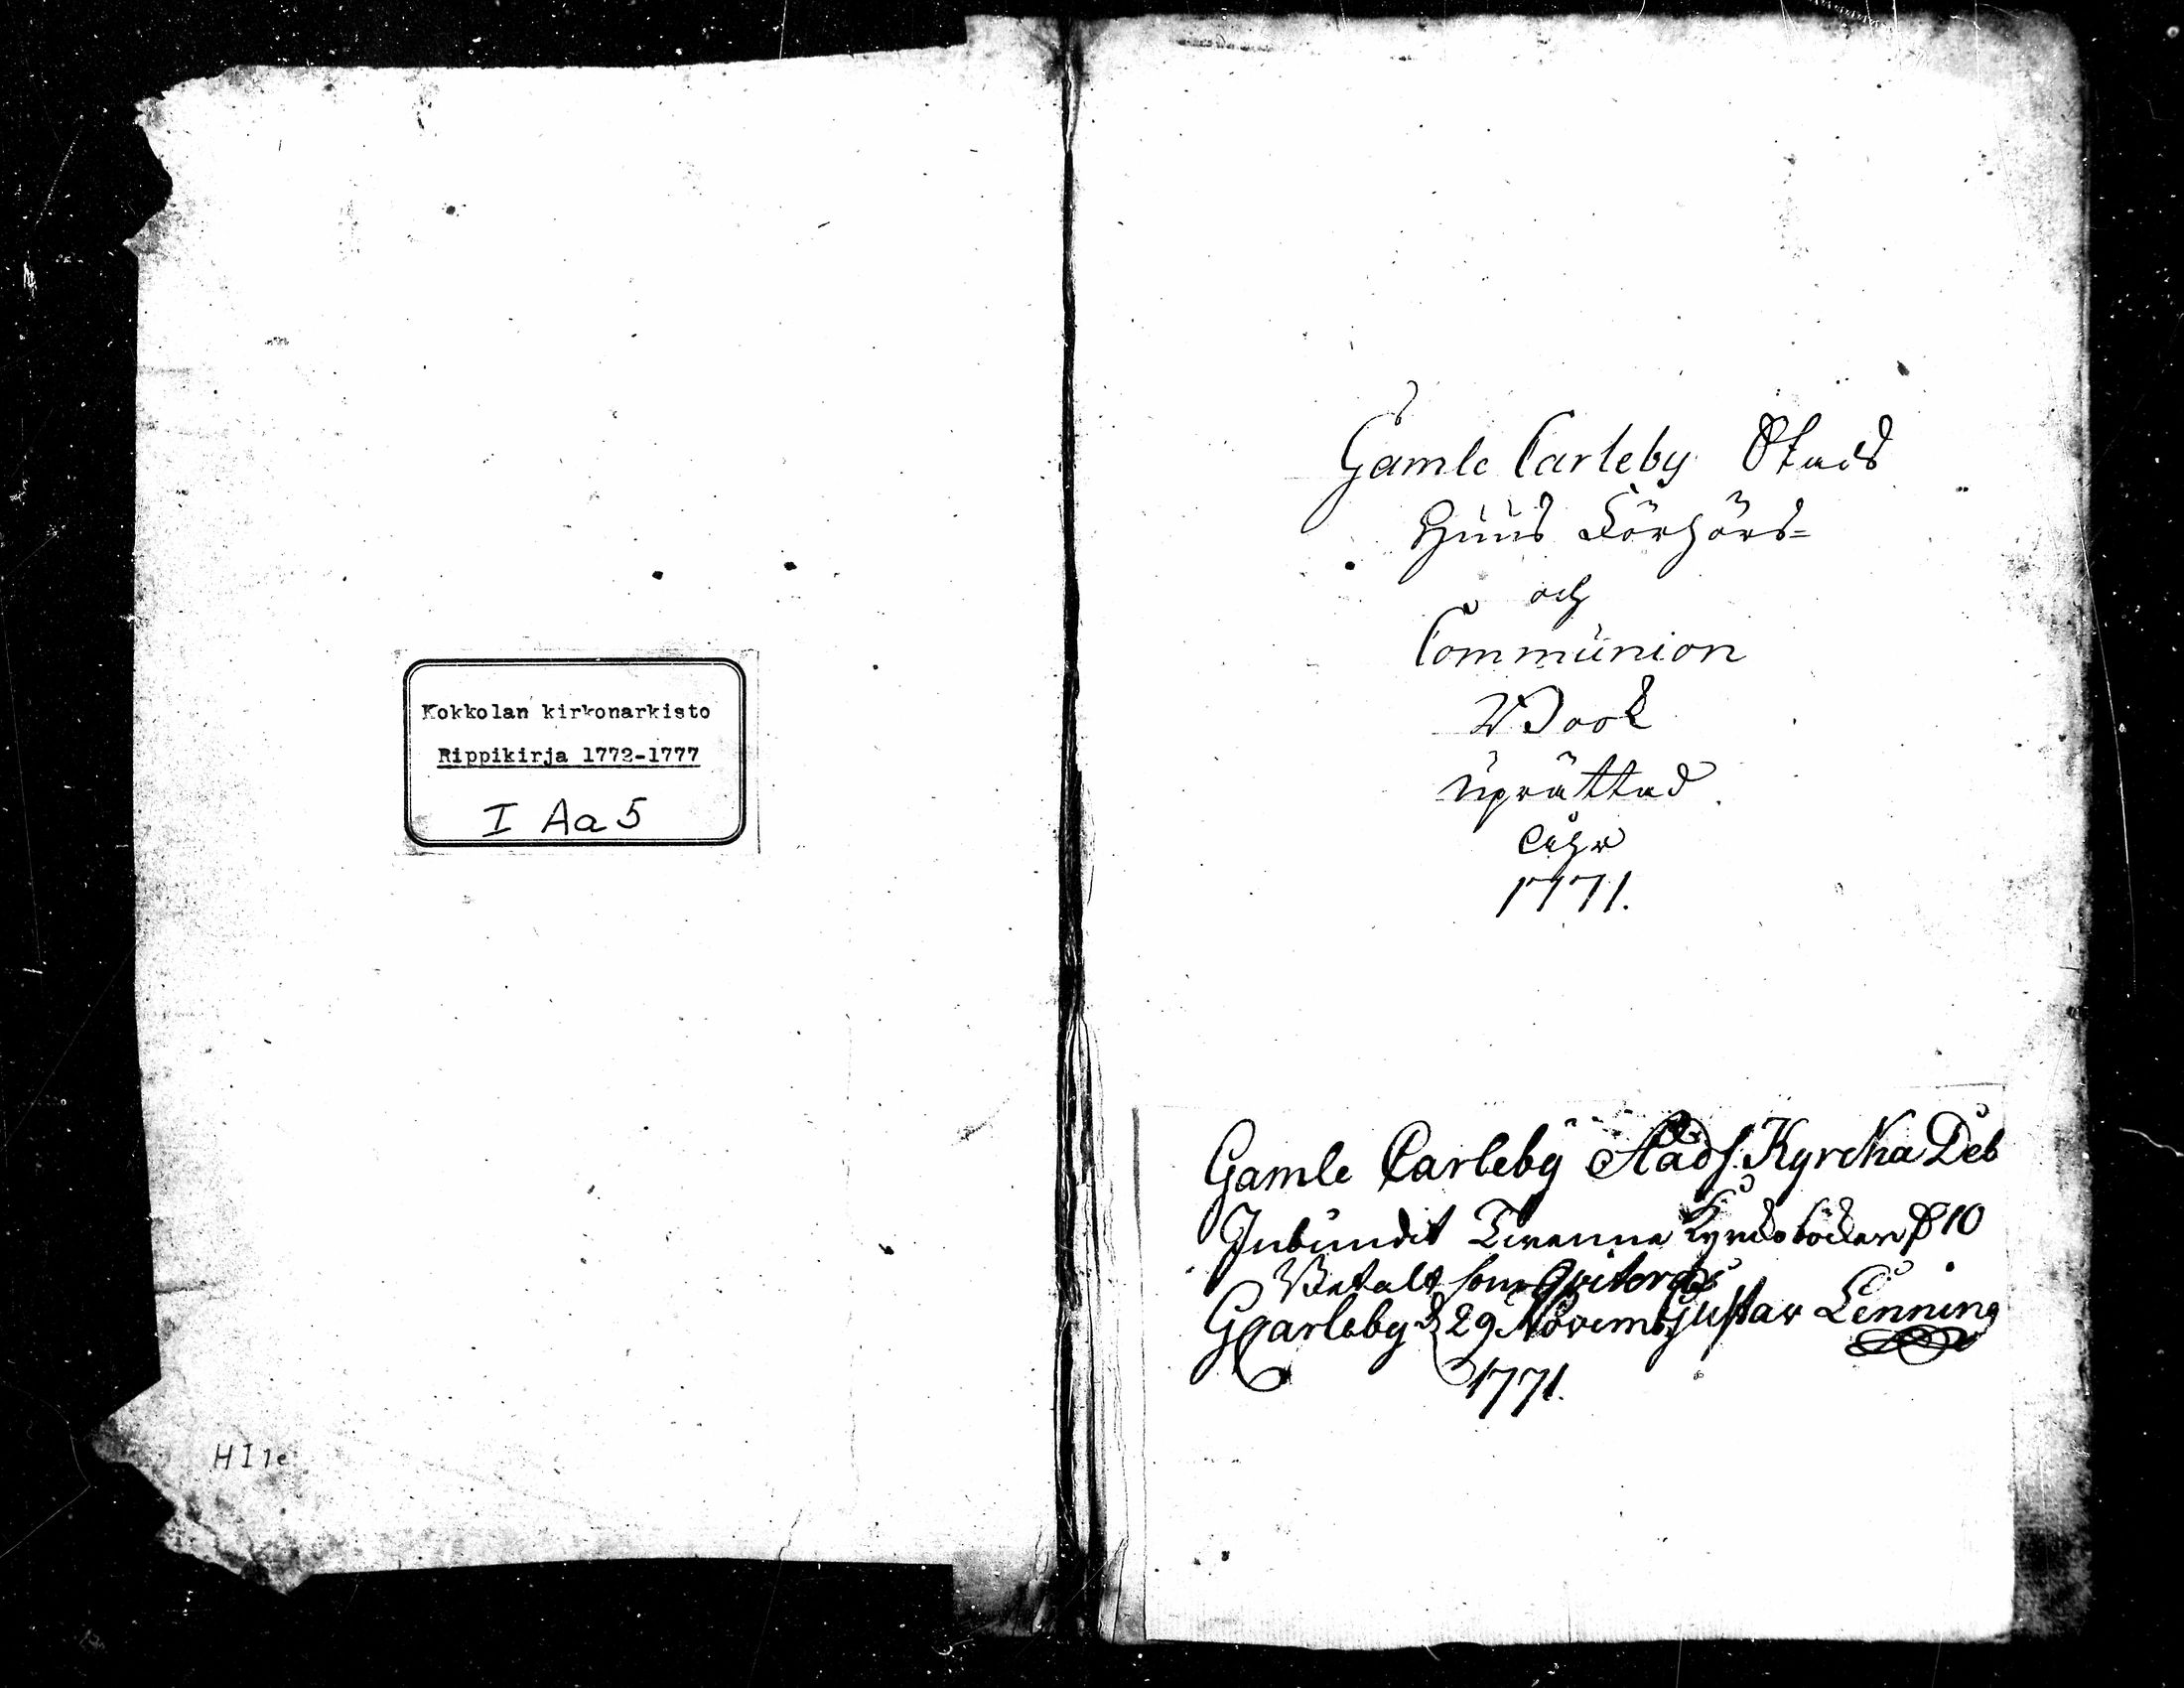 Kokkolan kirkonarkisto
Rippikirja 1772-1777
I Aa 5
H I 1e
Gamle Carleby Stads
Huus Förhörs=
och
Communion
Book
uprättad
Åhr
1771.
Gamle Carleby Stads Kyrcka Deb
Inbundit Tvenne Kyrckoböcker 10
Betalt som qviteras
GCarleby d 29 Novemb Gustav Lenning
1771.